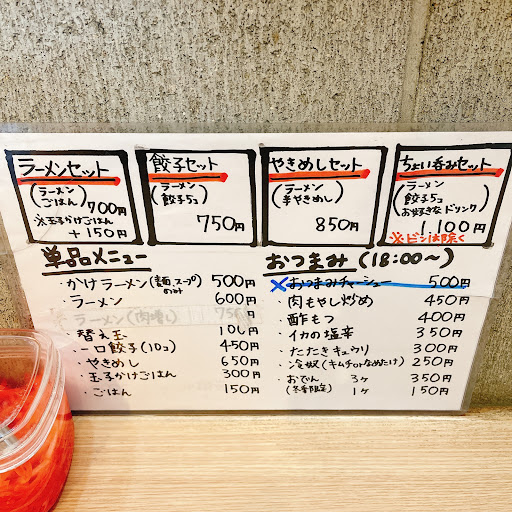 ラーメンセット
(ラーメン
ごはん)
700円
※玉子かけごはん
+150円
餃子セット
(ラーメン
餃子5コ)
750円
やきめしセット
(ラーメン
半やきめし)
850円
ちょい呑みセット
(ラーメン
餃子5コ
お好きなドリンク)
1,100円
※ビンは除く
単品メニュー
・かけラーメン(麺、スープのみ) 500円
・ラーメン 600円
・ラーメン(肉増し) 750円
・替え玉 100円
・一口餃子(10コ) 450円
・やきめし 650円
・玉子かけごはん 300円
・ごはん 150円
おつまみ(18:00〜)
×おつまみチャーシュー 500円
・肉もやし炒め 450円
・酢もつ 400円
・イカの塩辛 350円
・たたきキュウリ 300円
・冷奴(キムチorなめたけ) 250円
・おでん 3ヶ 350円
(冬季限定) 1ヶ 150円